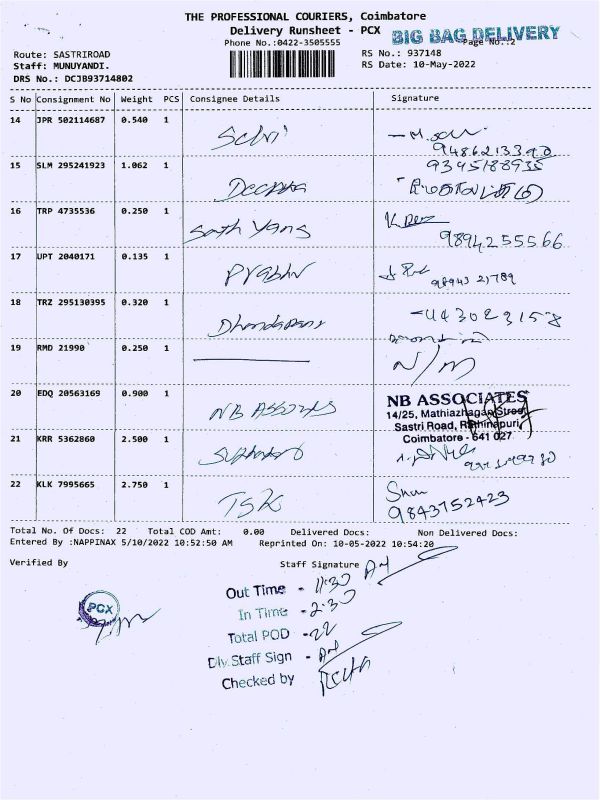 THE PROFESSIONAL COURIERS, Coimbatore
Delivery Runsheet - PCX
BIG BAG DELIVERY
Phone No.:0422-3505555
Page No.:2
Route: SASTRIROAD
RS No.: 937148
Staff: MUNUYANDI.
RS Date: 10-May-2022
DRS No.: DCJB93714802
S No Consignment No Weight PCS Consignee Details Signature
14 JPR 502114687 0.540 1
15 SLM 295241923 1.062 1 Deepha
9345188935
16 TRP 4735536 0.250 1 Sath Yang
9894255566
17 UPT 2040171 0.135 1 Prabhu
98943 21789
18 TRZ 295130395 0.320 1 Dhandapani
19 RMD 21990 0.250 1 N/M
20 EDQ 20563169 0.900 1 NB Associates
NB ASSOCIATES
14/25, Mathiazhagan Street,
Sastri Road, Rathinapuri,
Coimbatore - 641 027
21 KRR 5362860 2.500 1
22 KLK 7995665 2.750 1 TSK
9843752423
Total No. Of Docs: 22 Total COD Amt: 0.00 Delivered Docs: Non Delivered Docs:
Entered By :NAPPINAX 5/10/2022 10:52:50 AM Reprinted On: 10-05-2022 10:54:20
Verified By Staff Signature
Out Time - 11:30
In Time - 2:30
Total POD - 22
Dlv.Staff Sign -
Checked by
PCX